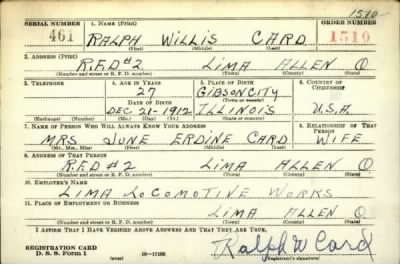 1510
SERIAL NUMBER 1. NAME (Print) ORDER NUMBER
461 RALPH WILLIS CARD 1510
(First) (Middle) (Last)
2. ADDRESS (Print)
R.F.D #2 LIMA ALLEN O
(Number and street or R. F. D. number) (Town) (County) (State)
3. TELEPHONE 4. AGE IN YEARS 5. PLACE OF BIRTH 6. COUNTRY OF CITIZENSHIP
27 GIBSON CITY
(Town or county)
DATE OF BIRTH
DEC 21-1912 ILLINOIS U.S.A.
(Exchange) (Number) (Mo.) (Day) (Yr.) (State or country)
7. NAME OF PERSON WHO WILL ALWAYS KNOW YOUR ADDRESS 8. RELATIONSHIP OF THAT PERSON
MRS JUNE ERDINE CARD WIFE
(Mr., Mrs., Miss) (First) (Middle) (Last)
9. ADDRESS OF THAT PERSON
R.F.D #2 LIMA ALLEN O
(Number and street or R. F. D. number) (Town) (County) (State)
10. EMPLOYER'S NAME
LIMA LOCOMOTIVE WORKS
11. PLACE OF EMPLOYMENT OR BUSINESS
LIMA ALLEN O
(Number and street or R. F. D. number) (Town) (County) (State)
I AFFIRM THAT I HAVE VERIFIED ABOVE ANSWERS AND THAT THEY ARE TRUE.
REGISTRATION CARD
D. S. S. Form 1 (over) Ralph W Card
(Registrant's signature)